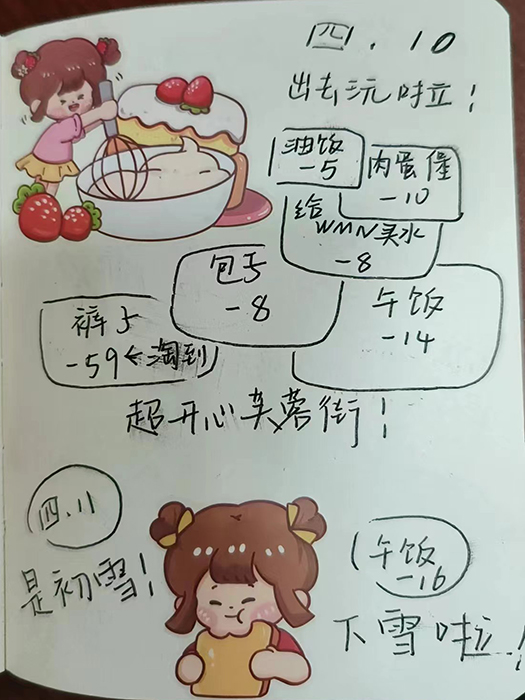 四.10
出去玩啦!
油饭
-5
肉蛋堡
-10
给
WMN买水
-8
包子
-8
午饭
-14
裤子
-59←淘到
超开心芙蓉街!
四.11
是初雪!
午饭
-16
下雪啦!